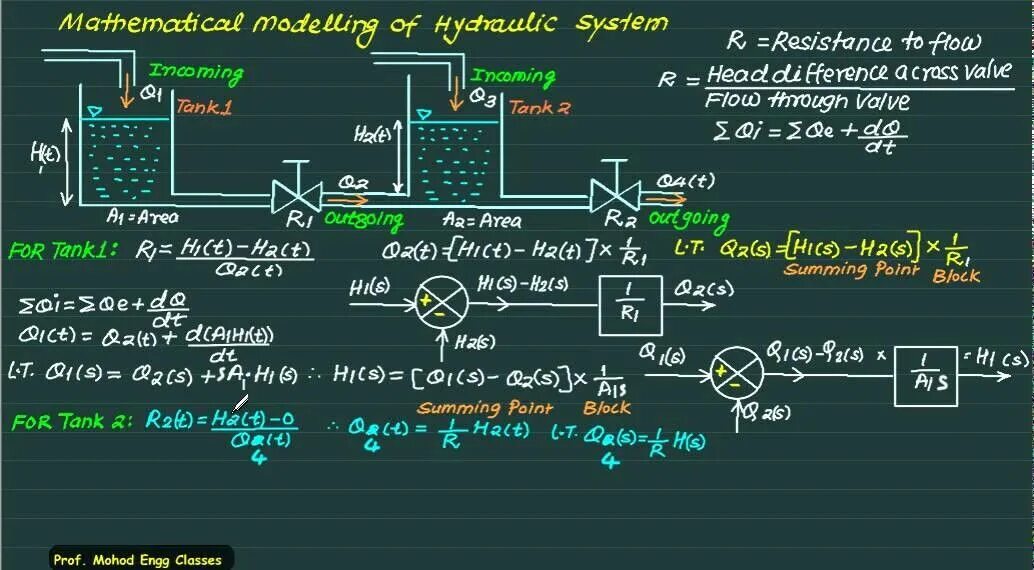 Mathematical modelling of Hydraulic System
R = Resistance to flow
R = Head difference across valve / Flow through Valve
ΣQi = ΣQe + dQ/dt
Incoming
Q1
Tank 1
H1(t)
A1 = Area
R1
Q2
outgoing
Incoming
Q3
Tank 2
H2(t)
A2 = Area
R2
Q4(t)
outgoing
FOR Tank 1: R1 = H1(t) - H2(t) / Q2(t)
Q2(t) = [H1(t) - H2(t)] × 1/R1
L.T. Q2(s) = [H1(s) - H2(s)] × 1/R1
Summing Point Block
H1(s)
+
-
H1(s) - H2(s)
1/R1
Q2(s)
H2(s)
ΣQi = ΣQe + dQ/dt
Q1(t) = Q2(t) + d(A1H1(t))/dt
L.T. Q1(s) = Q2(s) + SA1·H1(s) ∴ H1(s) = [Q1(s) - Q2(s)] × 1/A1s
Summing Point Block
Q1(s)
+
-
Q1(s) - Q2(s) ×
1/A1s
= H1(s)
Q2(s)
FOR Tank 2: R2(t) = H2(t) - 0 / Q4(t)
∴ Q4(t) = 1/R H2(t)
L.T. Q4(s) = 1/R H(s)
Prof. Mohod Engg Classes